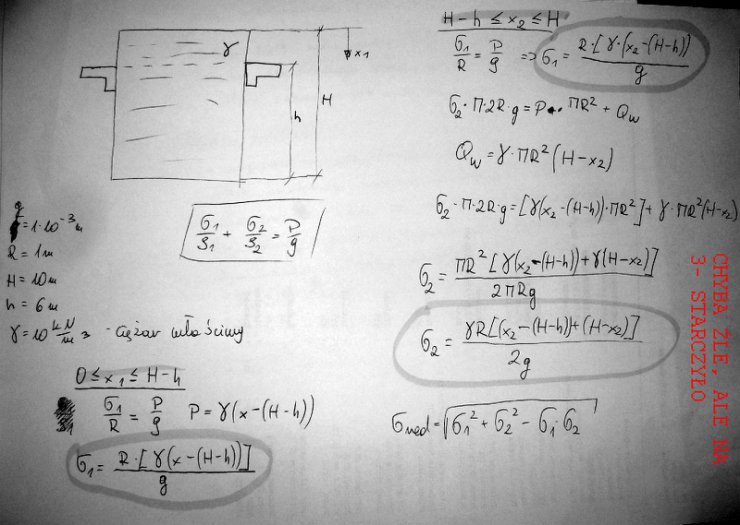 γ
x₁
h
H
g = 1·10⁻³ m
R = 1m
H = 10m
h = 6m
γ = 10 kN/m³ - ciężar właściwy
σ₁/ρ₁ + σ₂/ρ₂ = P/g
0 ≤ x₁ ≤ H-h
σ₁/R = P/g P = γ(x-(H-h))
σ₁ = R·[γ(x-(H-h))]/g
H-h ≤ x₂ ≤ H
σ₁/R = P/g => σ₁ = R·[γ·(x₂-(H-h))]/g
σ₂·Π·2R·g = P·ΠR² + Qw
Qw = γ·ΠR²(H-x₂)
σ₂·Π·2R·g = [γ(x₂-(H-h))·ΠR²] + γ·ΠR²(H-x₂)
σ₂ = ΠR²[γ(x₂-(H-h))+γ(H-x₂)]/2ΠRg
σ₂ = γR[(x₂-(H-h))+(H-x₂)]/2g
σred = √(σ₁² + σ₂² - σ₁·σ₂)
CHYBA ŹLE, ALE NA
3- STARCZYŁO